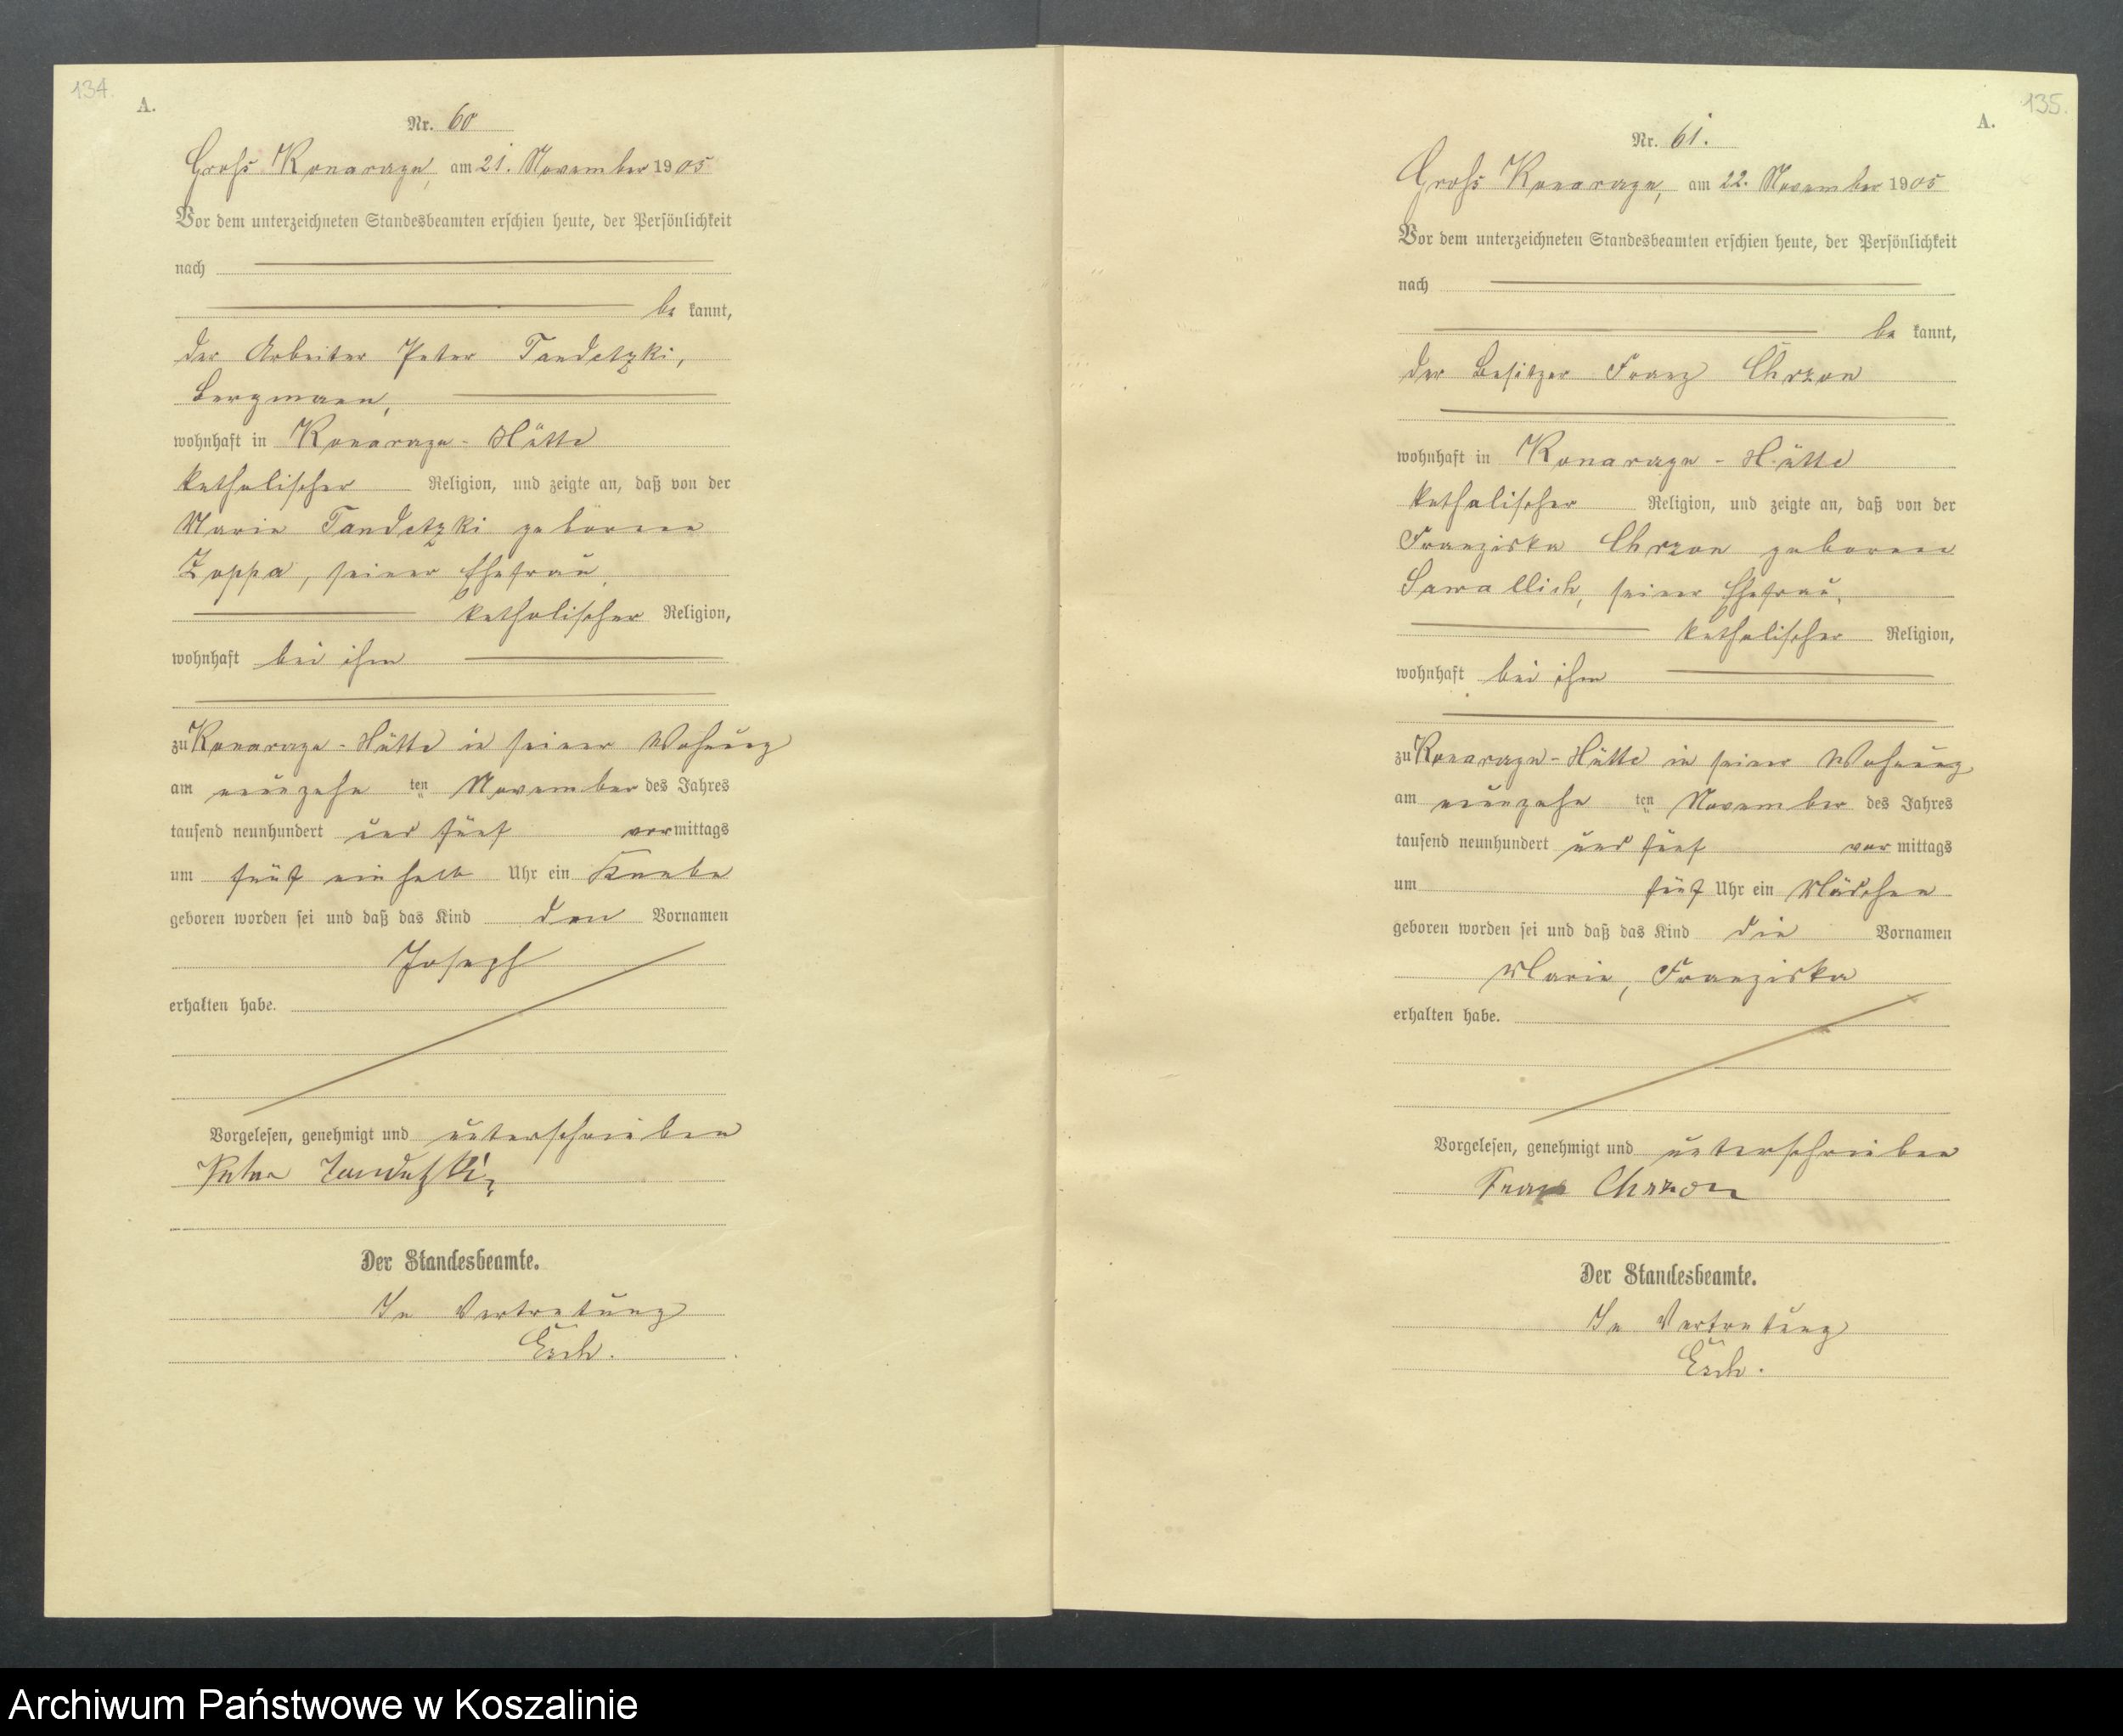 134.
A.
Nr. 60
Groß Konarczyn, am 21. November 1905
Vor dem unterzeichneten Standesbeamten erschien heute, der Persönlichkeit
nach
be kannt,
der Arbeiter Peter Tandetzki,
wohnhaft in Konarczyn-Hütte
katholischer Religion, und zeigte an, daß von der
Marie Tandetzki geborene
Zoppa, seiner Ehefrau,
katholischer Religion,
wohnhaft bei ihm
zu Konarczyn-Hütte in seiner Wohnung
am neunzehn ten November des Jahres
tausend neunhundert und fünf vormittags
um fünf ein halb Uhr ein Knabe
geboren worden sei und daß das Kind den Vornamen
Joseph
erhalten habe.
Vorgelesen, genehmigt und unterschrieben
Peter Tandetzki
Der Standesbeamte.
In Vertretung
Esch.
135.
A.
Nr. 61.
Groß Konarczyn, am 22. November 1905
Vor dem unterzeichneten Standesbeamten erschien heute, der Persönlichkeit
nach
be kannt,
der Besitzer Franz Chrzon
wohnhaft in Konarczyn-Hütte
katholischer Religion, und zeigte an, daß von der
Franziska Chrzon geborene
Sawallich, seiner Ehefrau,
katholischer Religion,
wohnhaft bei ihm
zu Konarczyn-Hütte in seiner Wohnung
am neunzehn ten November des Jahres
tausend neunhundert und fünf vor mittags
um fünf Uhr ein Mädchen
geboren worden sei und daß das Kind die Vornamen
Marie, Franziska
erhalten habe.
Vorgelesen, genehmigt und unterschrieben
Franz Chrzon
Der Standesbeamte.
In Vertretung
Esch.
Archiwum Państwowe w Koszalinie